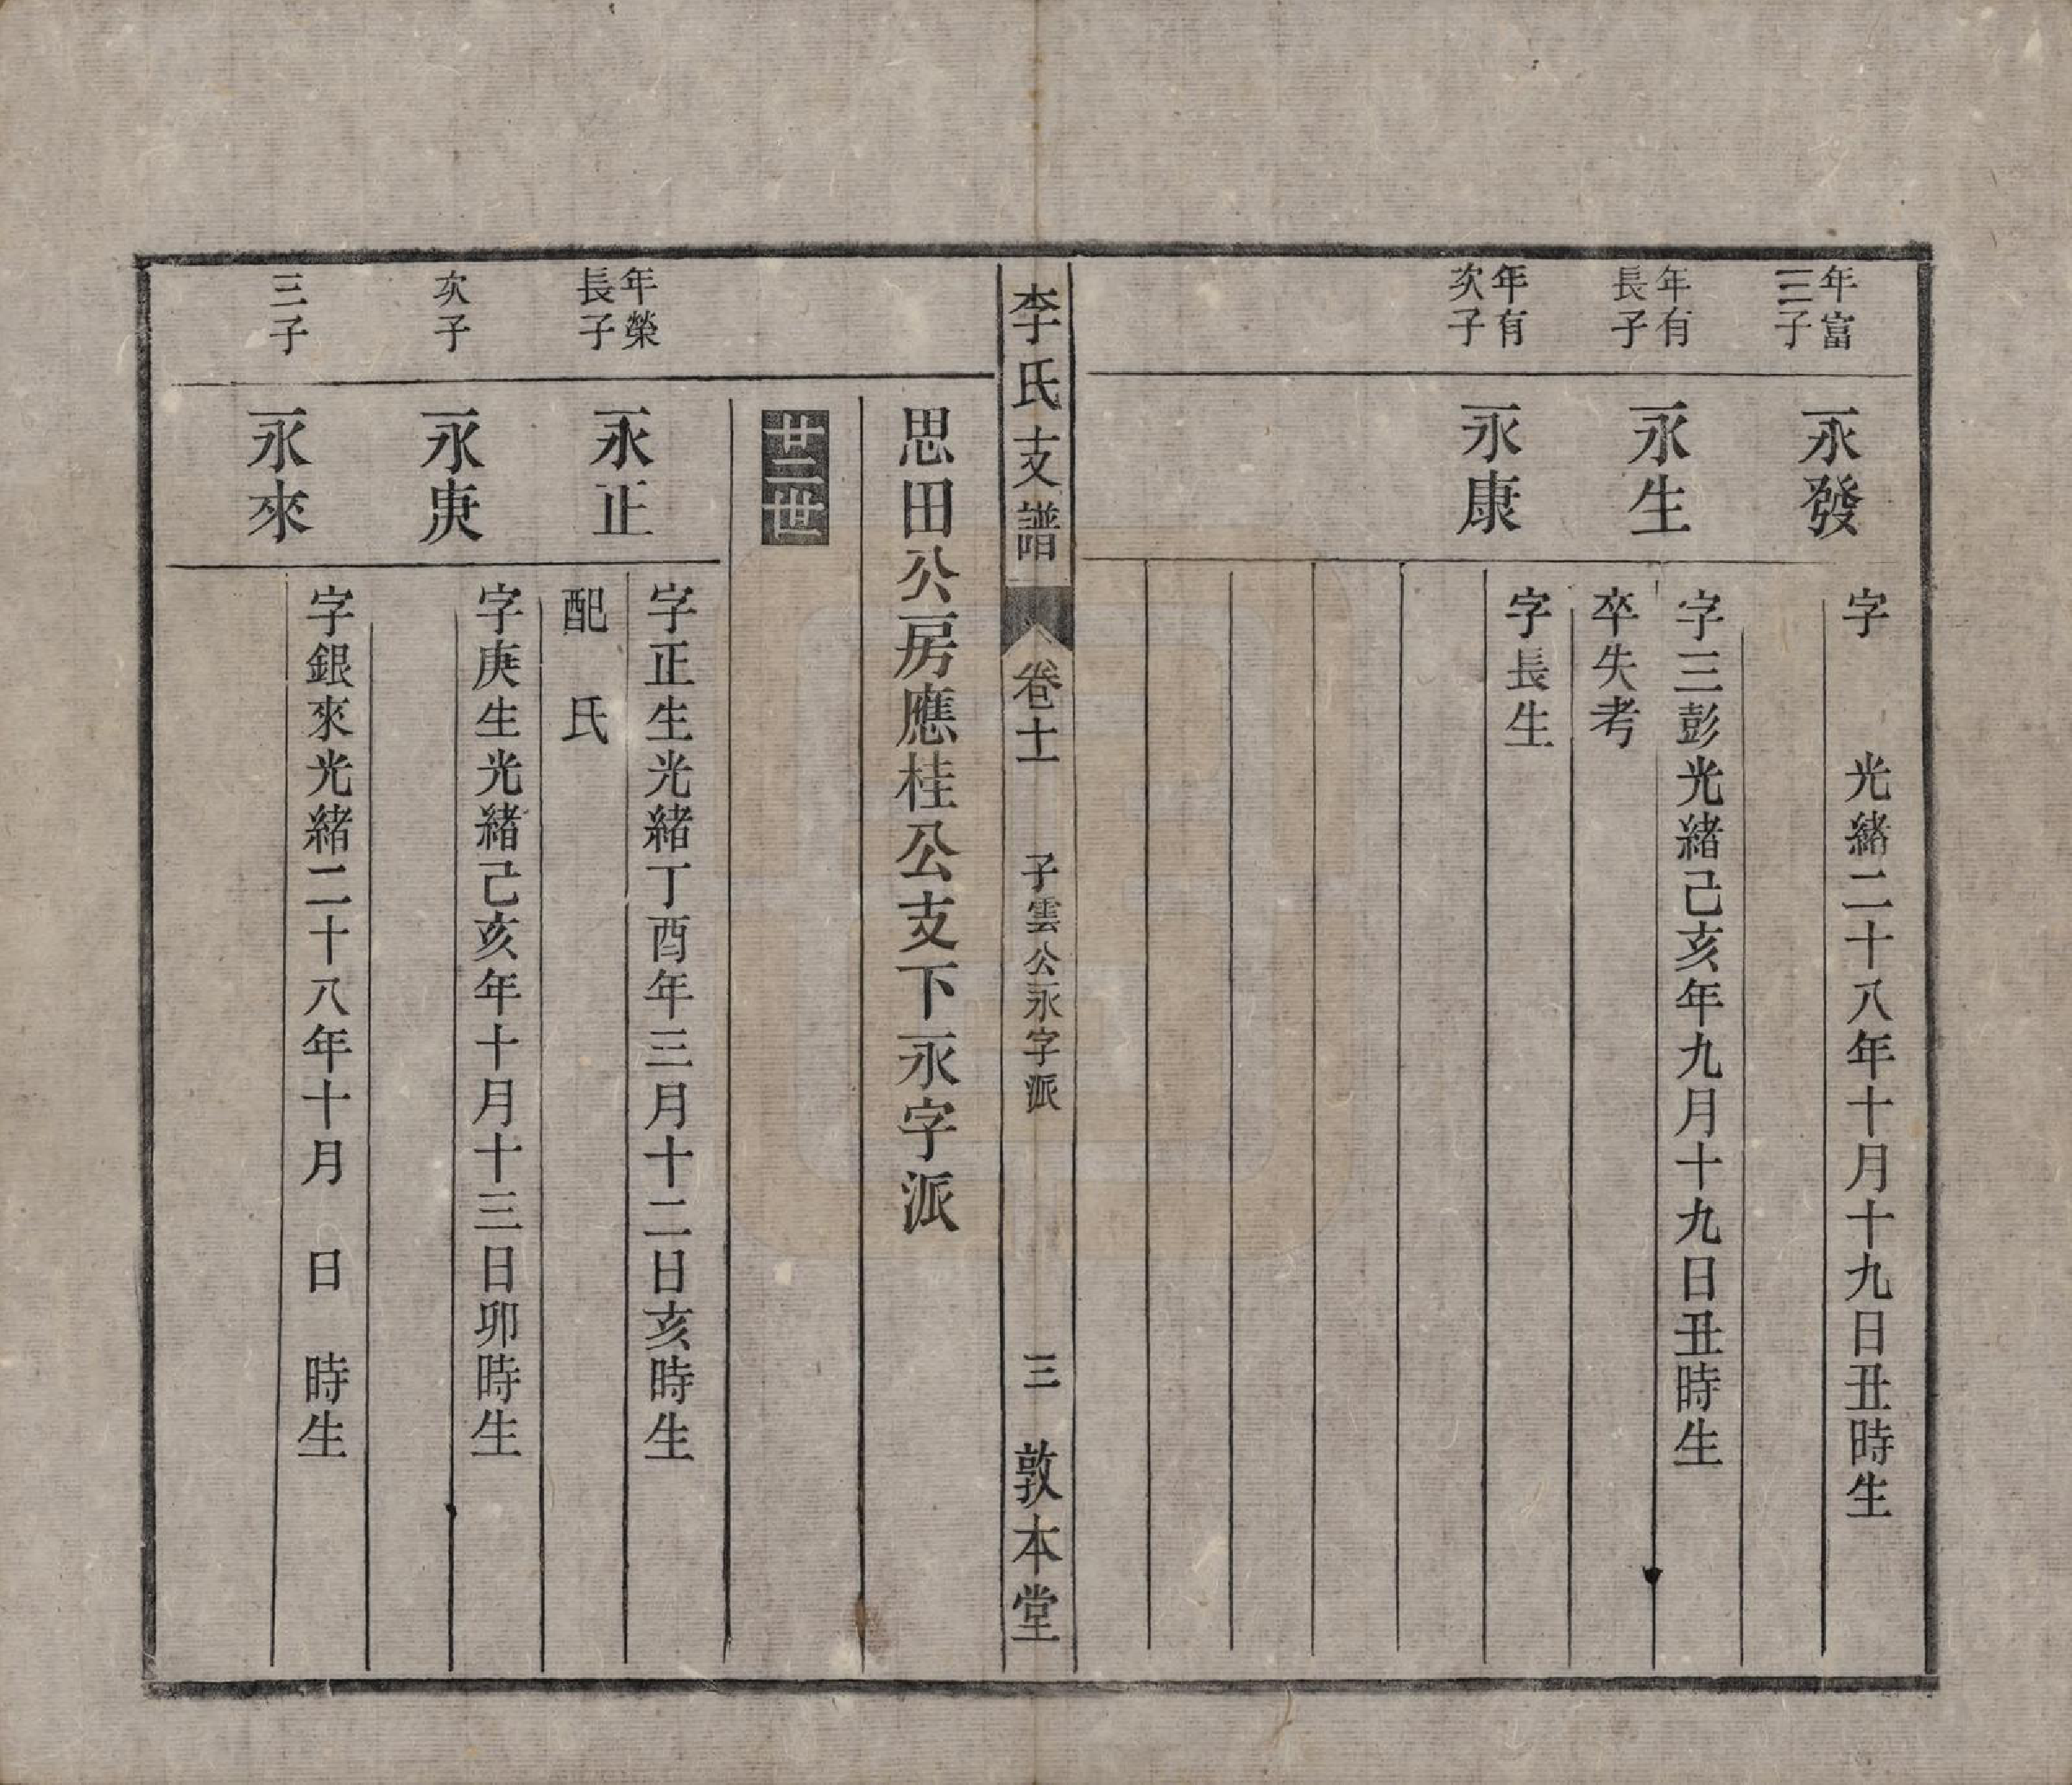 年富
三子
永發
字　　光緒二十八年十月十九日丑時生
年有
長子
永生
字三彭光緒己亥年九月十九日丑時生
卒失考
年有
次子
永康
字長生
李氏支譜　卷十一　子雲公永字派　三　敦本堂
思田公房應桂公支下永字派
廿二世
年榮
長子
永正
字正生光緒丁酉年三月十二日亥時生
配　氏
次子
永庚
字庚生光緒己亥年十月十三日卯時生
三子
永來
字銀來光緒二十八年十月　日　時生